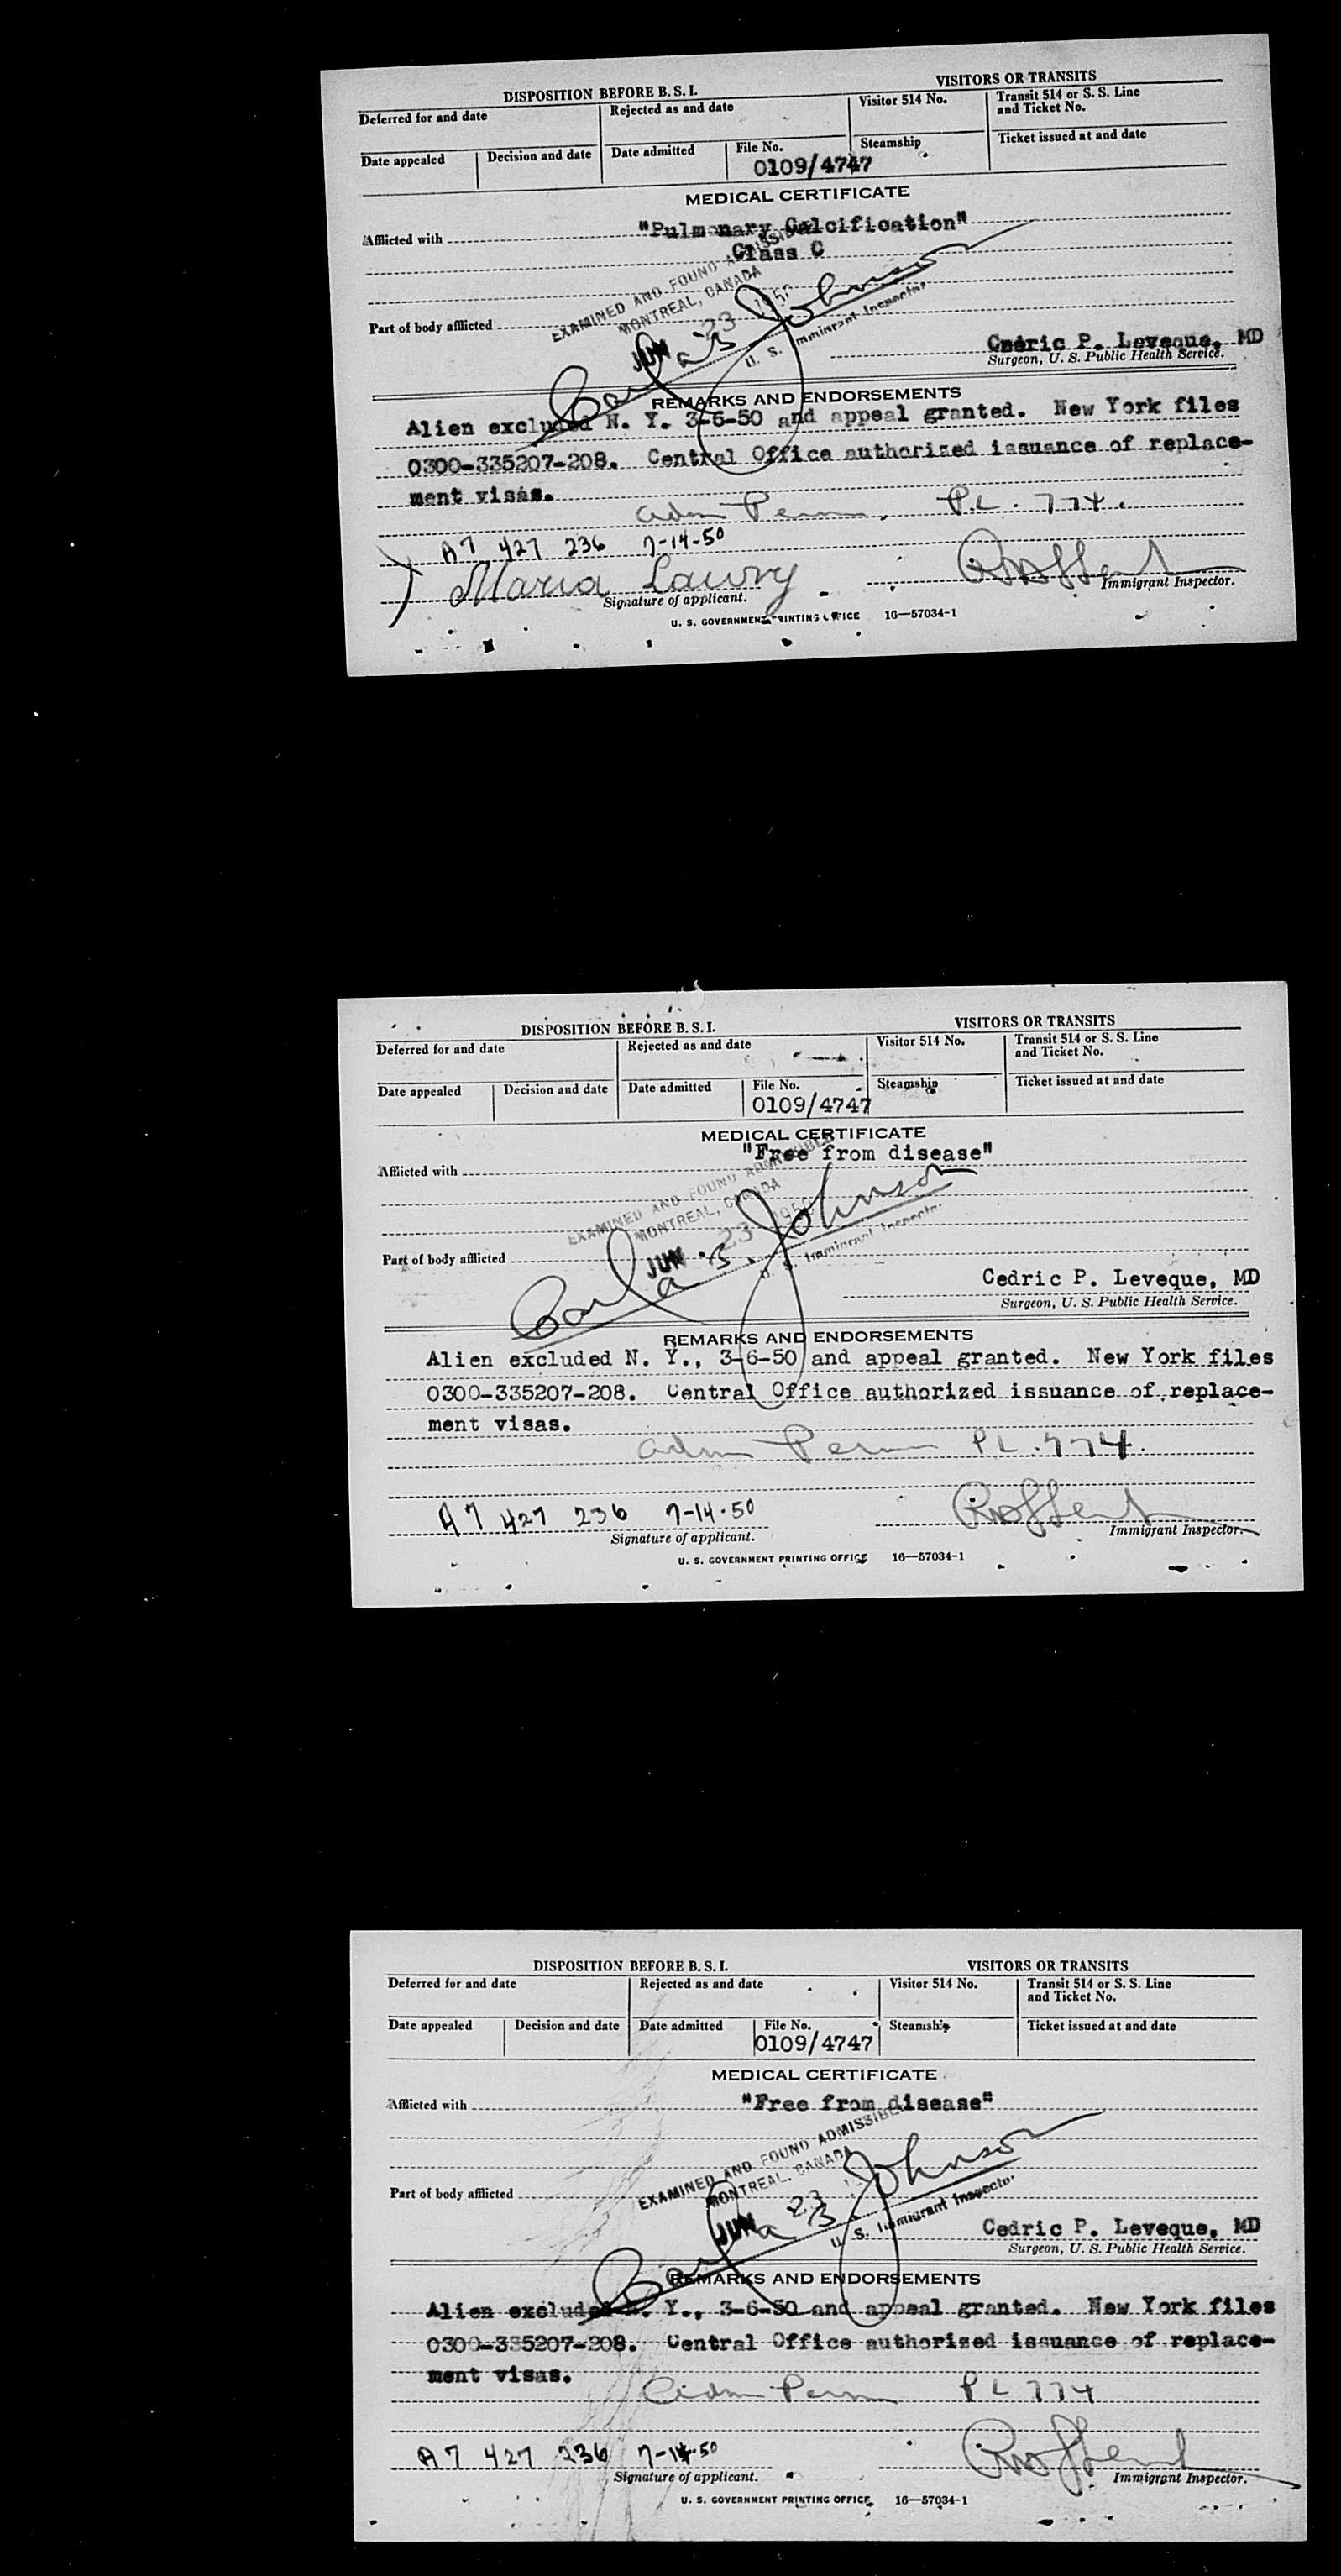 DISPOSITION BEFORE B. S. I.
VISITORS OR TRANSITS
Deferred for and date
Rejected as and date
Visitor 514 No.
Transit 514 or S. S. Line
and Ticket No.
Date appealed
Decision and date
Date admitted
File No.
0109/4747
Steamship
Ticket issued at and date
MEDICAL CERTIFICATE
Afflicted with
"Pulmonary Calcification"
Class C
EXAMINED AND FOUND
MONTREAL, CANADA
JUN 23 1950
Johnson
U. S. Immigrant Inspector
Part of body afflicted
Cedric P. Leveque, MD
Surgeon, U. S. Public Health Service.
REMARKS AND ENDORSEMENTS
Alien excluded N. Y. 3-6-50 and appeal granted. New York files
0300-335207-208. Central Office authorized issuance of replace-
ment visas.
Adm Perm, P.L. 774.
A7 427 236 7-14-50
Maria Lawry
Signature of applicant.
Immigrant Inspector.
U. S. GOVERNMENT PRINTING OFFICE 16—57034-1
DISPOSITION BEFORE B. S. I.
VISITORS OR TRANSITS
Deferred for and date
Rejected as and date
Visitor 514 No.
Transit 514 or S. S. Line
and Ticket No.
Date appealed
Decision and date
Date admitted
File No.
0109/4747
Steamship
Ticket issued at and date
MEDICAL CERTIFICATE
"Free from disease"
Afflicted with
EXAMINED AND FOUND ADMISSIBLE
MONTREAL, CANADA
JUN 23 1950
Johnson
U. S. Immigrant Inspector
Part of body afflicted
Cedric P. Leveque, MD
Surgeon, U. S. Public Health Service.
REMARKS AND ENDORSEMENTS
Alien excluded N. Y., 3-6-50 and appeal granted. New York files
0300-335207-208. Central Office authorized issuance of replace-
ment visas.
Adm Perm PL.774.
A7 427 236 7-14-50
Signature of applicant.
Immigrant Inspector.
U. S. GOVERNMENT PRINTING OFFICE 16—57034-1
DISPOSITION BEFORE B. S. I.
VISITORS OR TRANSITS
Deferred for and date
Rejected as and date
Visitor 514 No.
Transit 514 or S. S. Line
and Ticket No.
Date appealed
Decision and date
Date admitted
File No.
0109/4747
Steamship
Ticket issued at and date
MEDICAL CERTIFICATE
Afflicted with
"Free from disease"
EXAMINED AND FOUND ADMISSIBLE
MONTREAL, CANADA
JUN 23
Johnson
U. S. Immigrant Inspector
Part of body afflicted
Cedric P. Leveque, MD
Surgeon, U. S. Public Health Service.
REMARKS AND ENDORSEMENTS
Alien excluded N. Y., 3-6-50 and appeal granted. New York files
0300-335207-208. Central Office authorized issuance of replace-
ment visas.
Adm Perm PL 774
A7 427 236 7-14-50
Signature of applicant.
Immigrant Inspector.
U. S. GOVERNMENT PRINTING OFFICE 16—57034-1